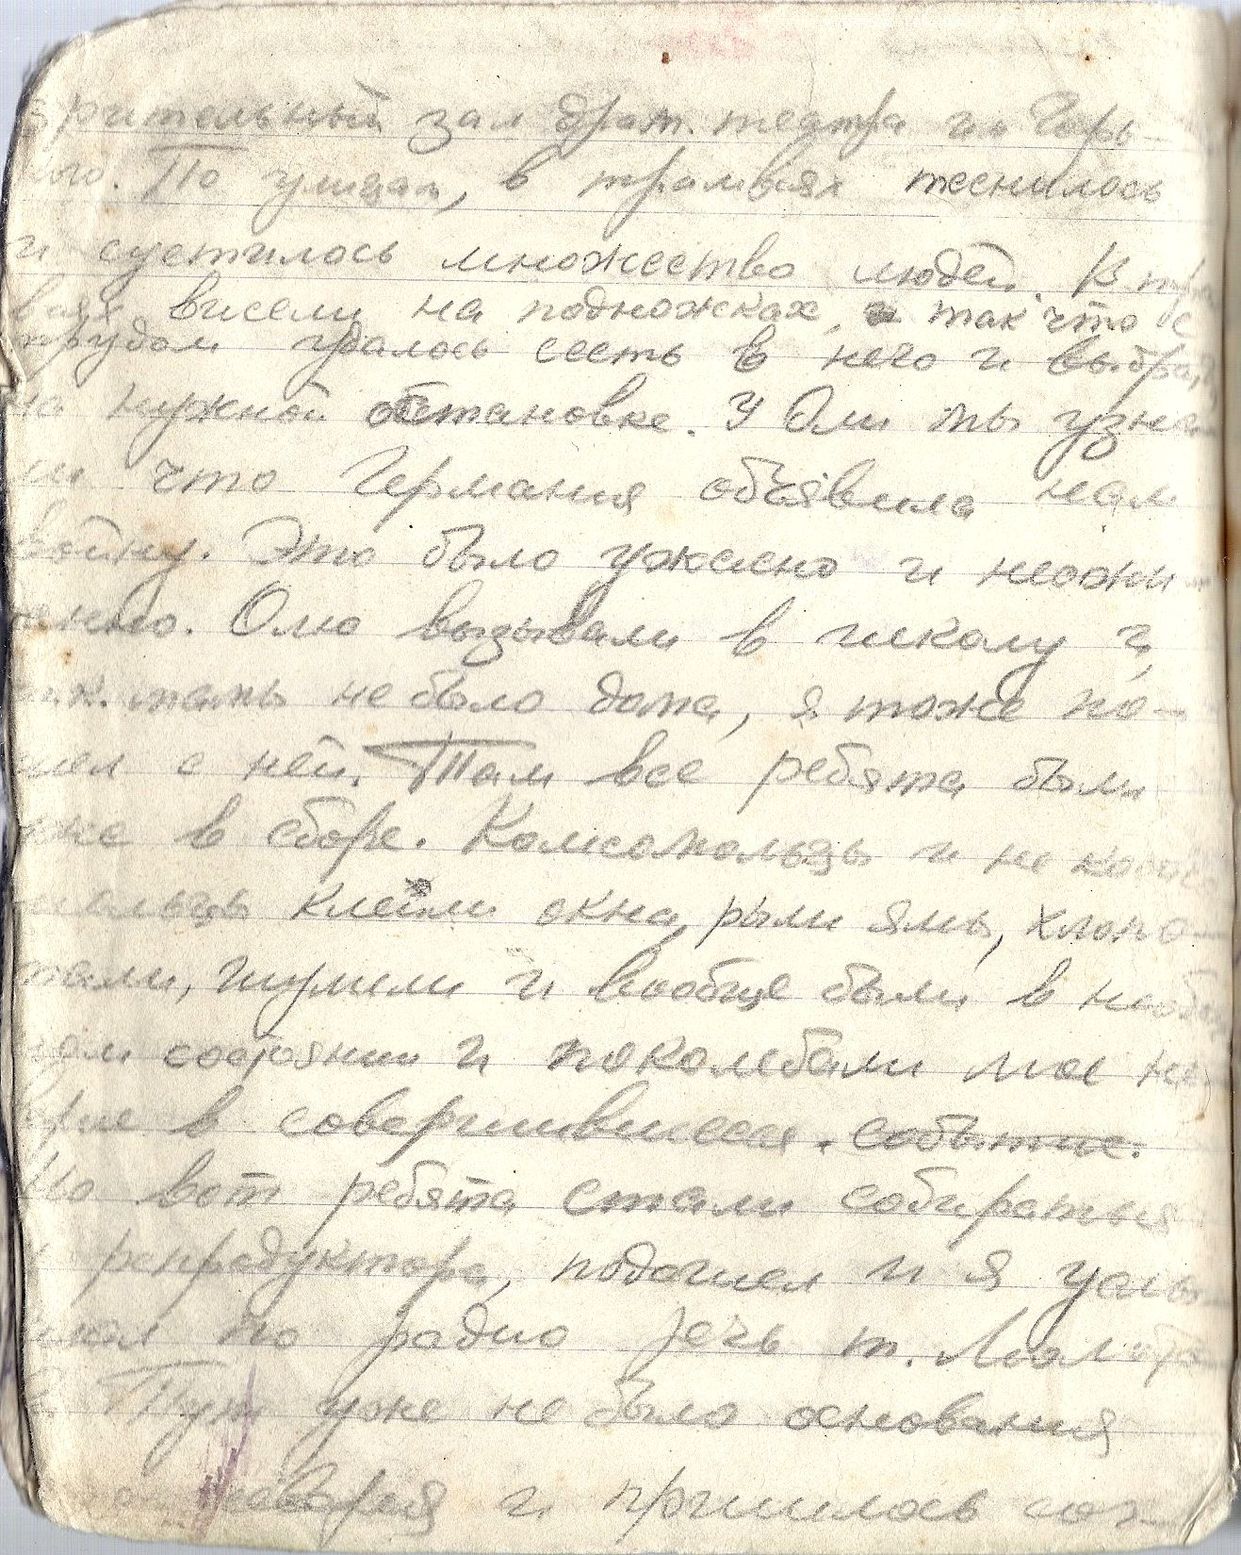 зрительный зал драм. театра им Горь-
кого. По улицам, в трамваях теснилось
и суетилось множество людей. В тра
ваях висели на подножках, а так что с
трудом удалось сесть в него и выбра
на нужной остановке. У Оли мы узна
ли что Германия объявила нам
войну. Это было ужасно и неожи-
данно. Олю вызывали в школу и,
т.к. мамы не было дома, я тоже по-
шел с ней. Там все ребята были
уже в сборе. Комсомольцы и не комсо
мольцы клеили окна, рыли ямы, хлопо-
тали, шумели и вообще были в необы
ном состоянии и поколебали мое не
верие в совершившееся. событие.
Но вот ребята стали собираться
репродуктора, подошел и я услы-
шал по радио речь т. Молото
Тут уже не было основания
неверия и пришлось сог-